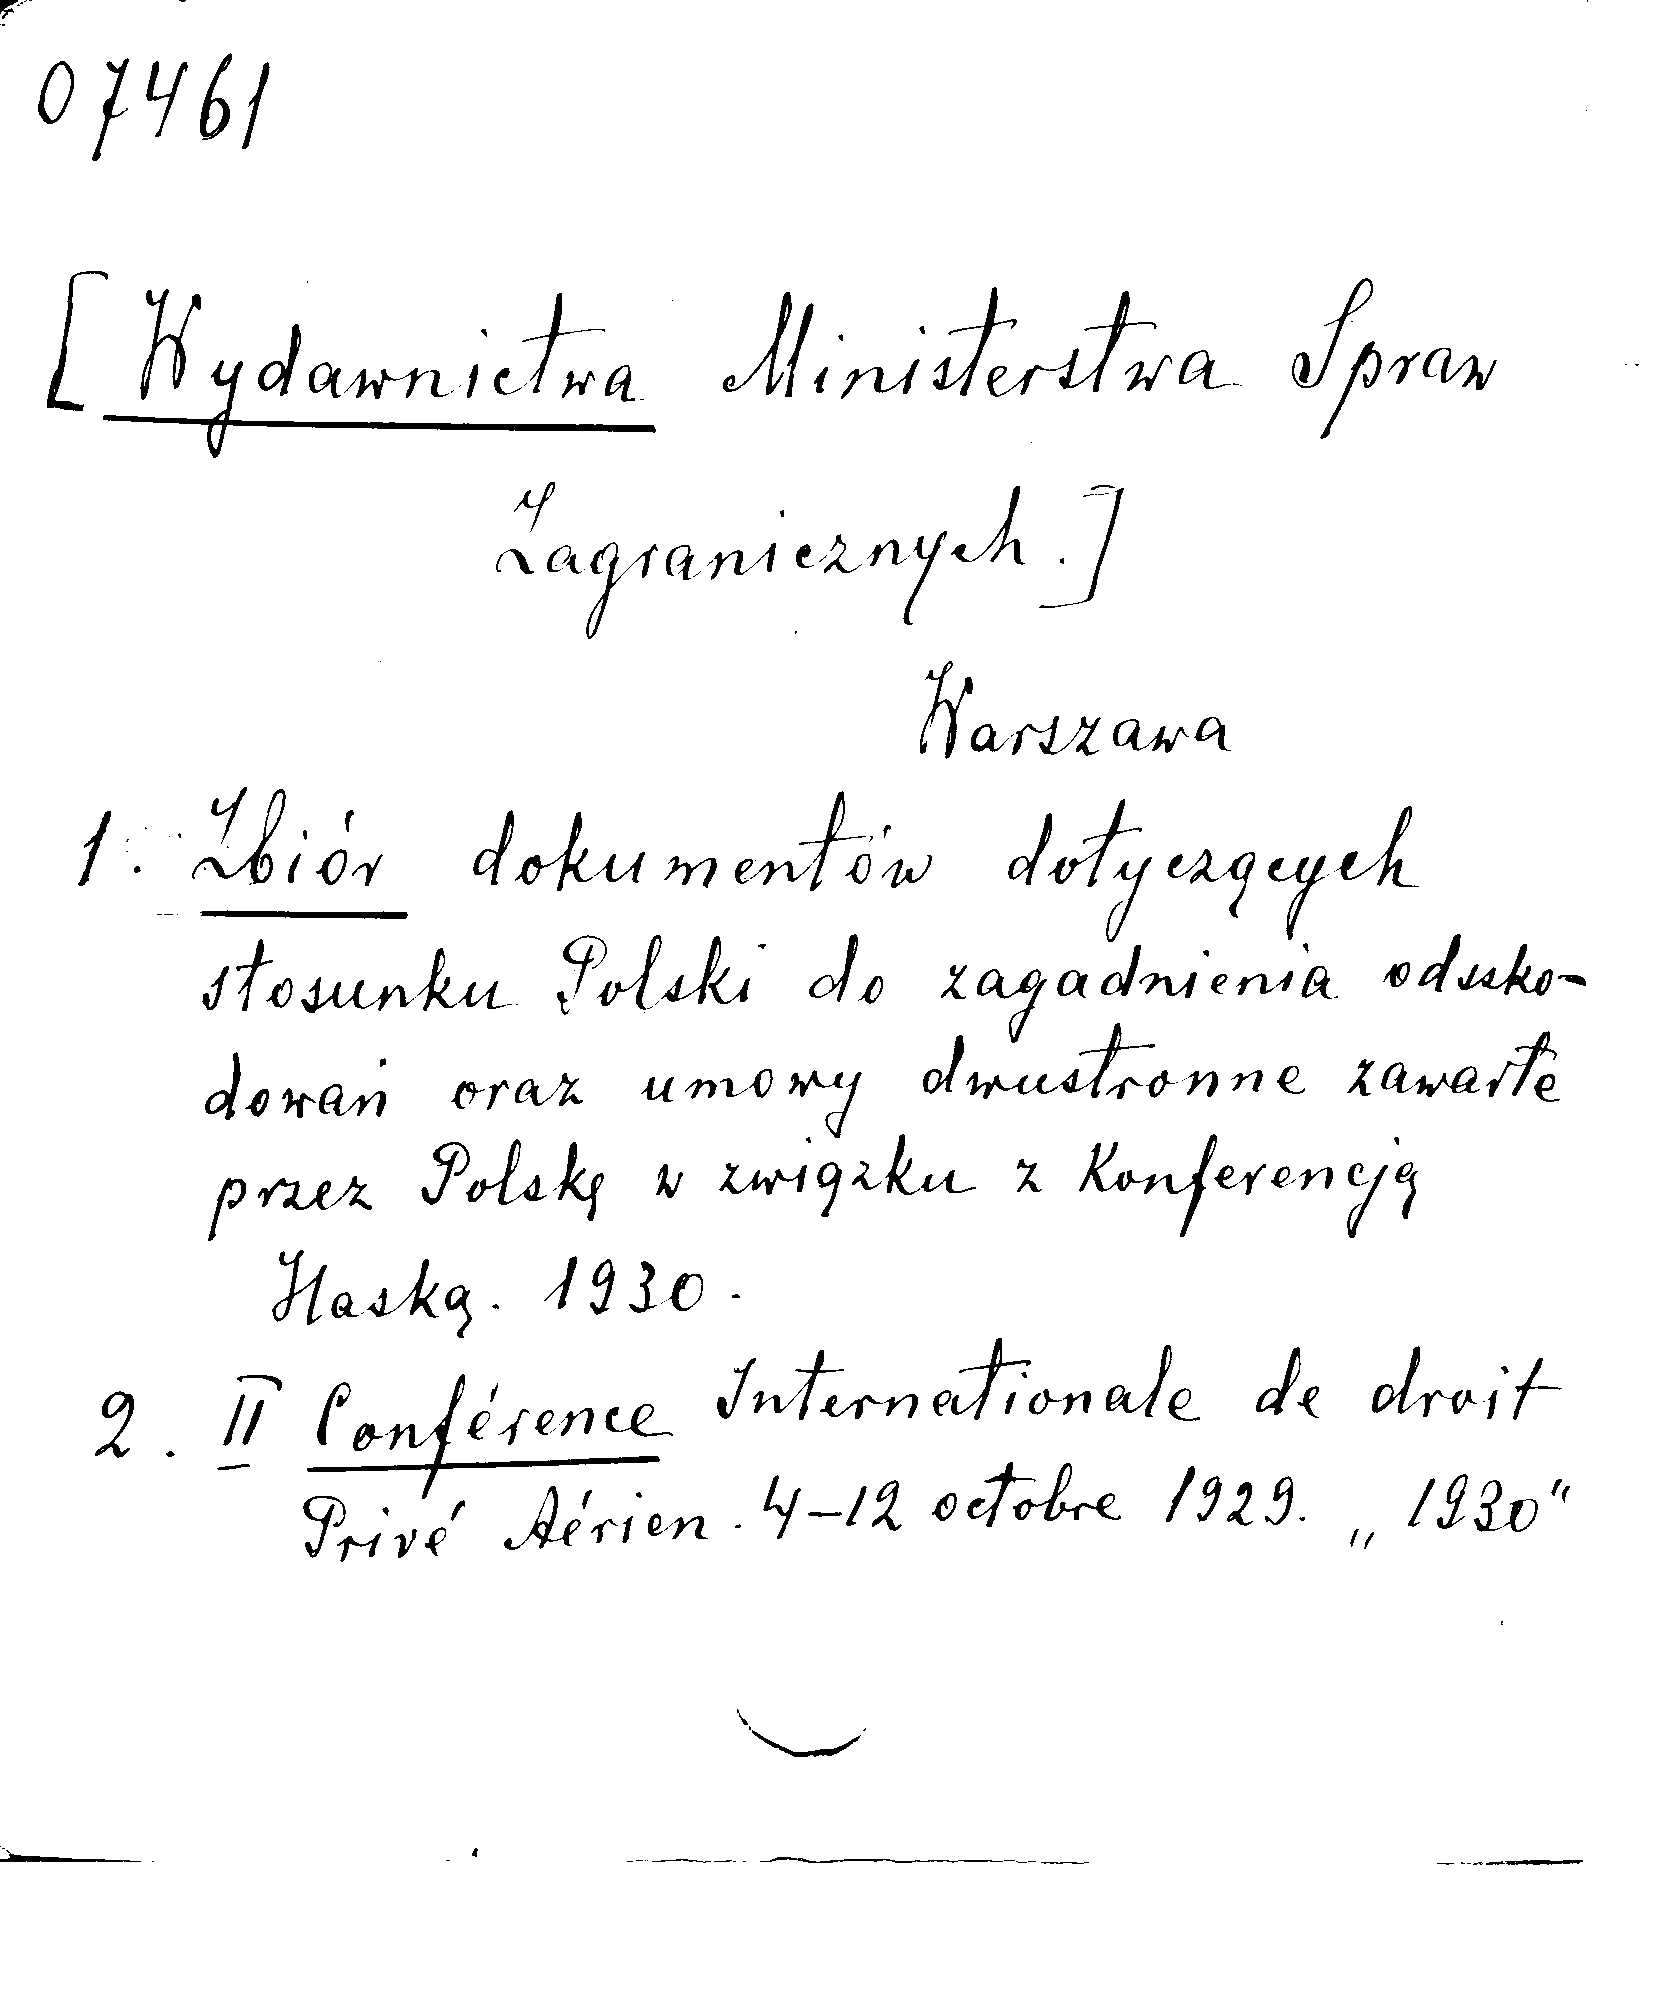 07461
[Wydawnictwa Ministerstwa Spraw
Zagranicznych.]
Warszawa
1. Zbiór dokumentów dotyczących
stosunku Polski do zagadnienia odszko-
dowań oraz umowy dwustronne zawarte
przez Polskę w związku z Konferencją
Haską. 1930.
2. II Conférence Internationale de droit
Privé Aérien. 4-12 octobre 1929. „1930"